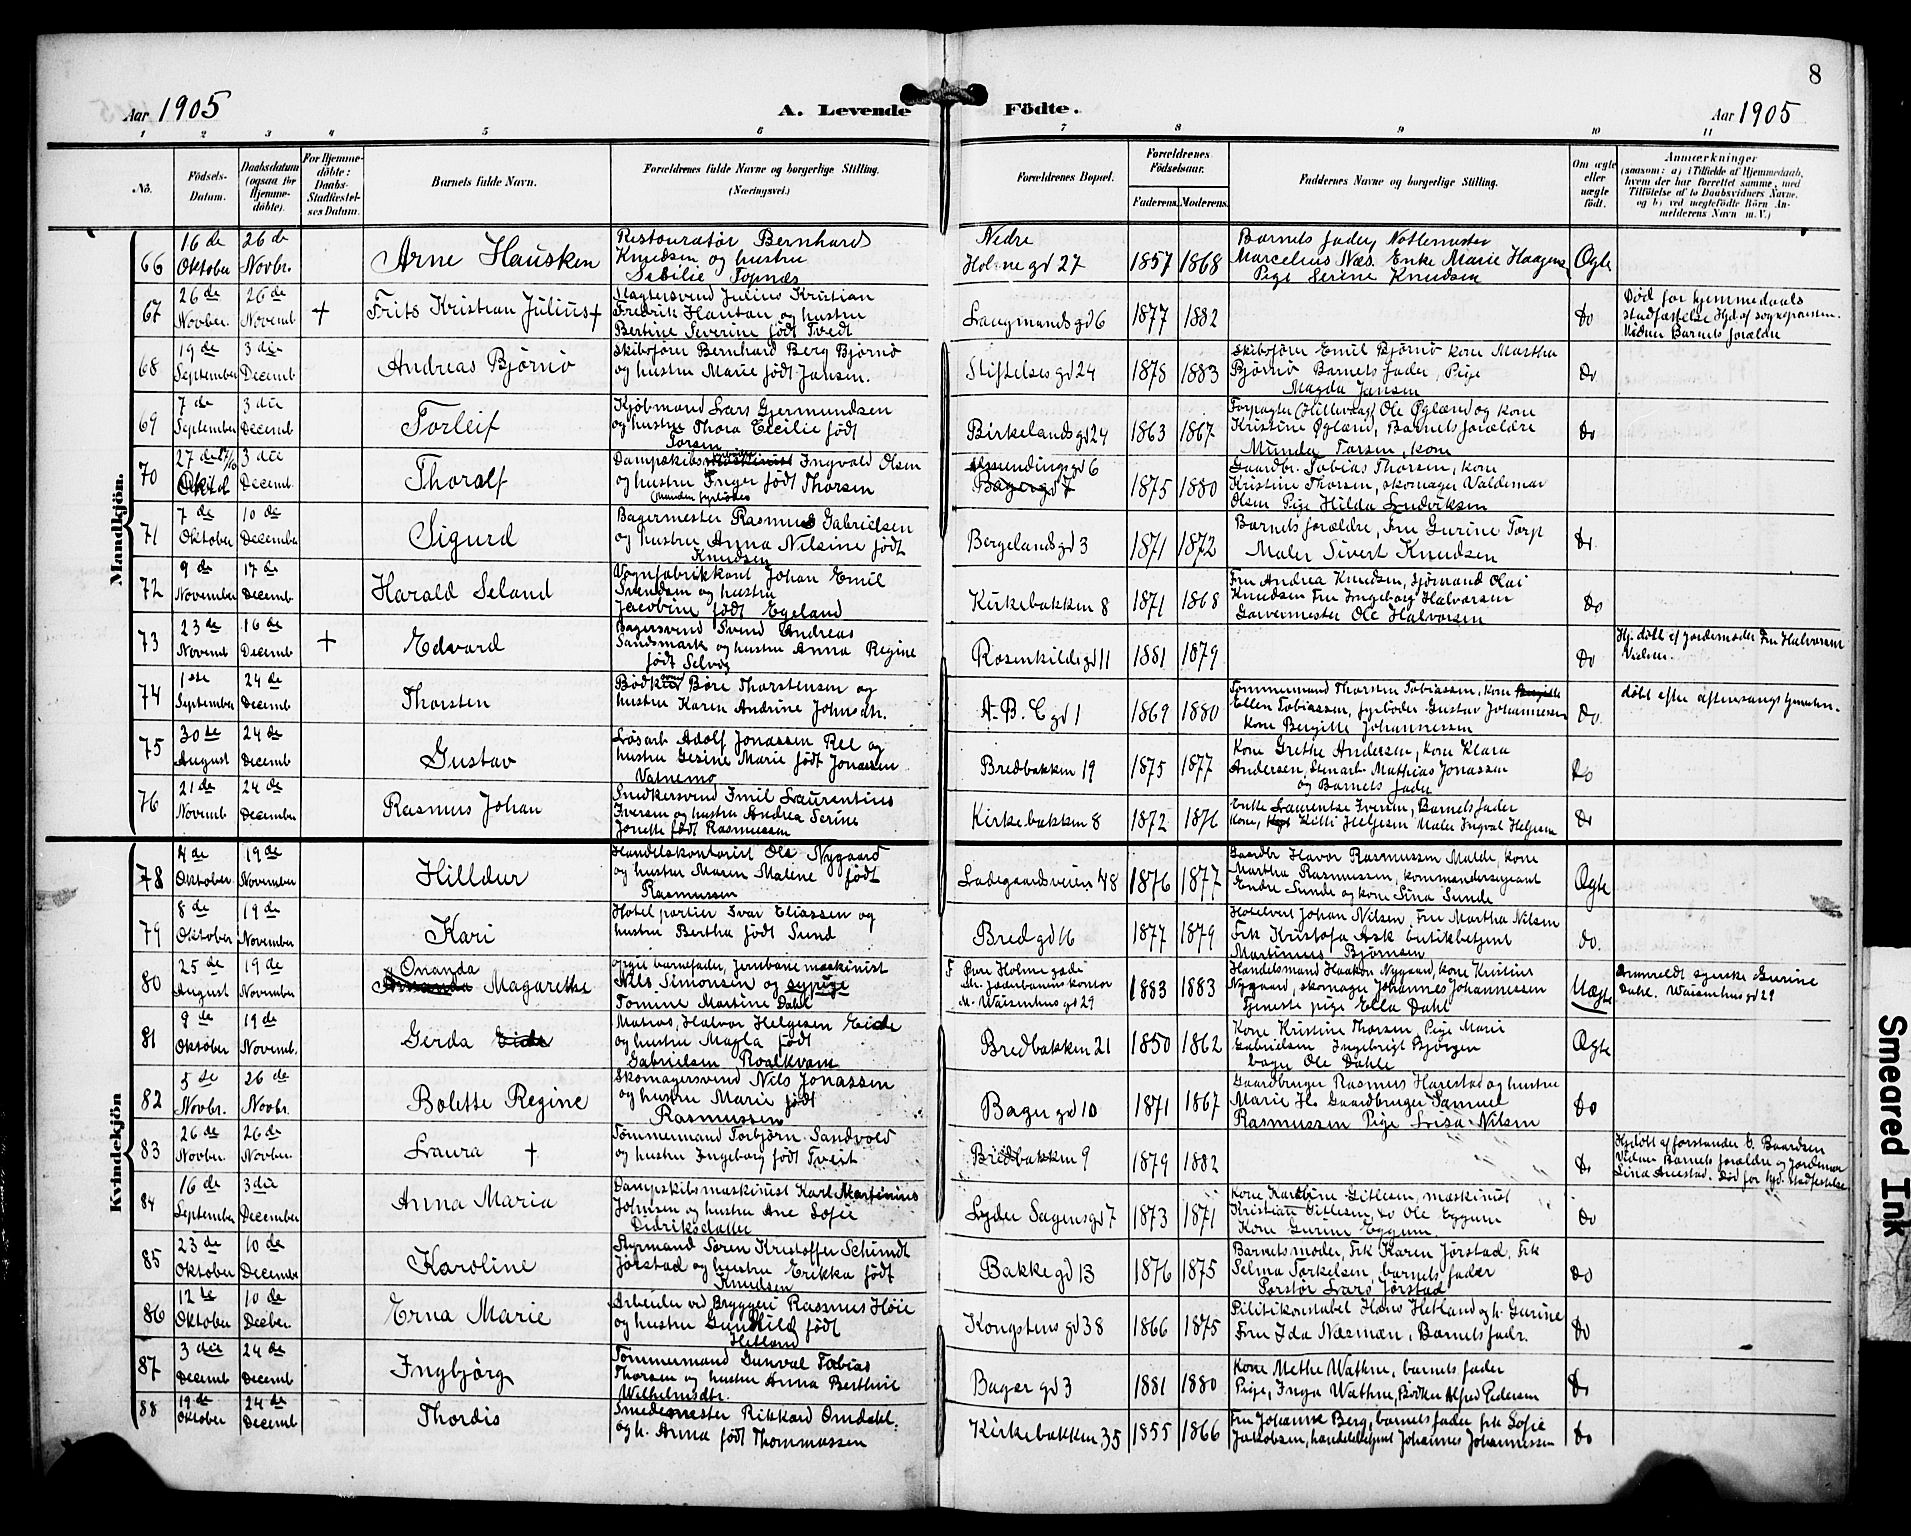 8
Aar 1905
A. Levende Födte.
Aar 1905
1 2 3 4 5 6 7 8 9 10 11
No.
Födsels-Datum.
Daabsdatum (ogsaa for Hjemme-döbte).
For Hjemme-döbte: Daabs-Stadfæstel-ses Datum.
Barnets fulde Navn.
Forældrenes fulde Navne og borgerlige Stilling. (Næringsvei.)
Forældrenes Bopæl.
Forældrenes Födselsaar.
Faderens. Moderens.
Faddernes Navne og borgerlige Stilling.
Om ægte eller uægte födt.
Anmærkninger
(saasom: a) i Tilfælde af Hjemmedaab, hvem der har forrettet samme, med Tilföielse af to Daabsvidners Navne, og b) ved uægtefödte Börn An-melderens Navn m. V.)
Mandkjön.
66 16 de Oktober 26 de Novbr. Arne Hausken
Restouratør Bernhard
Knudsen og hustru
Sebilie Topnæs
Nedre
Holmegd 27 1857 1868
Barnets fader,
Marcelius Næs. Enke Marie Haagens
Pige Serine Knudsen
Ægte
67 26 de Novber. 26 de Novemb + Frits Kristian Julius +
Slagtersvend Julius Kristian
Fredrik Hantan og hustru
Bertine Severine født Tvedt
Laugmandsgd 6 1877 1882 Do
Død før hjemmedaabs
stadfæstelse Hjd. af sognepræsten.
Vidner Barnets forældre
68 19 de September 3 die Decemb Andreas Bjørnø
Skibsfører Bernhard Berg Bjørnø
og hustru Marie født Jansen.
Stiftelsesgd 24 1878 1883
Skibsfører Emil Bjørnø kone Martha
Bjørnø Barnets fader, Pige
Magda Jansen
Do
69 7 de September 3 die Decemb Torleif
Kjøbmand Lars Gjermundsen
og hustru Thora Cecilie født
Torsen
Birkelandsgd 24 1863 1867
Forpagter Ole Øglænd og kone
Kristine Øglænd, Barnets forældre
Munda Torsen, kone
Do
70 27 de 3 die Decemb. Thoralf
Dampskibsmaskinist Ingvald Olsen
og hustru Inger født Thorsen
Bagergd 7 6 1875 1880
Gaardbr. Tobias Thorsen, kone
Kristine Thorsen, skomager Valdemar
Olsen Pige Hilda Ludviksen
71 7 de Oktober 10 de December Sigurd
Bagermester Rasmus Gabrielsen
og hustru Anna Nilsine født
Knudsen
Bergelandsgd 3 1871 1872
Barnets forældre, Fru Gurine Torp
Maler Sivert Knudsen
Do
72 9 de November 17 de Decemb Harald Seland
Vognfabrikkant Johan Emil
Svendsen og hustru
Jacobine født Egeland
Kirkebakken 8 1871 1868
Fru Andrea Knudsen, sjømand Olai
Knudsen Fru Ingeborg Halvorsen
Garvermester Ole Halvorsen
Do
73 23 de Novemb 16 de Decemb + Edvard
Bagersvend Svend Andreas
Sandsmark og hustru Anna Regine
født Selvig
Rosenkildegd 11 1881 1879 Do
Hj. døbt af jordemoder Fru Halvorsen
74 1ste September 24 de Decemb Thorsten
Bødker Børe Thorstensen og
hustru Karen Andrine Johnsdtr.
A. B. C gd 1 1869 1880
Tømmermand Thorsten Tobiassen, kone
Ellen Tobiassen, fyrbøder Gustav Johannessen
kone Bergitte Johannessen
Do
døbt efter aftensangstjenesten.
75 30 te August 24 de Decemb Gustav
Løsarb Adolf Jonassen Ree og
hustru Gesine Marie født Jonassen
Vatnemo
Bredbakken 19 1875 1877
Kone Grethe Andersen, kone Klara
Andersen, Stenarb. Mathias Jonassen
og Barnets fader
Do
76 21 de Novemb 24 de December Rasmus Johan
Snedkersvend Emil Laurentius
Iversen og hustru Andrea Serine
Jonette født Rasmussen
Kirkebakken 8 1872 1876
Enke Laurentse Iversen, Barnets fader
kone, Kitti Helgesen Maler Ingval Helgesen
Do
Kvindekjön
78 4 de Oktober 19 de November Hilldur
Handelskontorist Ole Nygaard
og hustru Maren Malene født
Rasmussen
Ladegaardsveien 48 1876 1877
Gaardbr Havor Rasmussen Malde, kone
Martha Rasmussen, kommandersergeant
Endre Sunde og kone Sina Sunde
Ægte
79 8 de Oktober 19 de November Kari
Hotel portier Ivar Eliassen og
hustru Bertha født Sund
Bredgd 16 1877 1879
Hotelvert Johan Nilsen, Fru Martha Nilsen
Frk Kristofa Ask butikbetjent
Martinius Bjørnsen
do.
80 25 de August 19 de November Onanda Magarethe
Opgit barnefader, Jernbane maskinist
Nils Simonsen og syerige
Tomine Martine Dahl
F Øvre Holmegade
M. Waisenhusgd 29 1883 1883
Handelsmand Haakon Nygaard, kone Kristine
Nygaard, skomager Johannes Johannessen
Tjeneste pige Ella Dahl
Uægte
Anmeldt syerske Gurine
Dahl. Waisenhusgd 29
81 9 de Oktober 19 de Novemb. Gerda Eide
Matros, Halvor Helgesen Eide
og hustru Magla født
Gabrielsen Roalkvam
Bredbakken 21 1850 1862
Kone Kristine Thorsen, Pige Marie
Gabrielsen Ingebrigt Bjørgen
Ole Dahle
Ægte
82 5 te Novbr. 26 de Novbr. Bolette Regine
Skomagersvend Nils Jonassen
og hustru Marie født
Rasmussen
Bagergd 10 1871 1867
Gaardbruger Rasmus Harestad og hustru
Marie H. Gaardbruger Samuel
Rasmussen Pige Lisa Nilsen
Do
83 26 de Novber. 26 de Novber. Laura +
Tømmermand Torbjørn Sandvold
og hustru Ingeborg født Tveit
Bredbakken 9 1879 1882 Do
Hjdøbt af forstander C. Baardsen
Vidner Barnets forældre og Jordemor
Lina Aarestad. Død før hjd. stadfæstelse
84 16 de September 3 die December Anna Maria
Dampskibsmaskinist Karl Martinius
Johnsen og hustru Ane Sofie
Didriksdatter
Lyder Sagensgd 7 1873 1871
Kone Karoline Gitlesen, maskinist
Kristian Gitlesen, do Ole Eggum
Kone Gurine Eggum
Do
85 23 de Oktober 10 de December Karoline
Styrmand Søren Kristoffer Schimdt
Jørstad og hustru Erikka født
Knudsen
Bakkegd 13 1876 1875
Barnets moder, Frk Karen Jørstad. Frk
Selma Torkelsen, barnets fader
Lars Jørstad
Do
86 12 te Oktober 10 de Deeber Erna Marie
Arbeider ved Bryggeri Rasmus Høie
og hustru Gunhild født
Hetland
Kongstensgd 38 1866 1875
Politikonstabel Hans Hetland og h. Gurine
Fru Ida Næsman, Barnets fadr.
Do
87 3 die Decemb 24 de Decemb Ingbjørg
Tømmermand Gunval Tobias
Thorsen og hustru Anna Berthine
Wilhelmsdtr.
Bagergd 3 1881 1880
Kone Methe Wathne, barnets fader
Pige, Inga Wathne, Bødker Alfred Pedersen
Do
88 19 de Oktober 24 de Decemb Thordis
Smedemester Rikkard Omdahl
og h. Anna født Thommassen
Kirkebakken 35 1855 1866
Fru Johanne Berg, barnets fader frk Sofie
Jakobsen, handelsbetjent Johannes Johannessen
Do
Smeared Ink